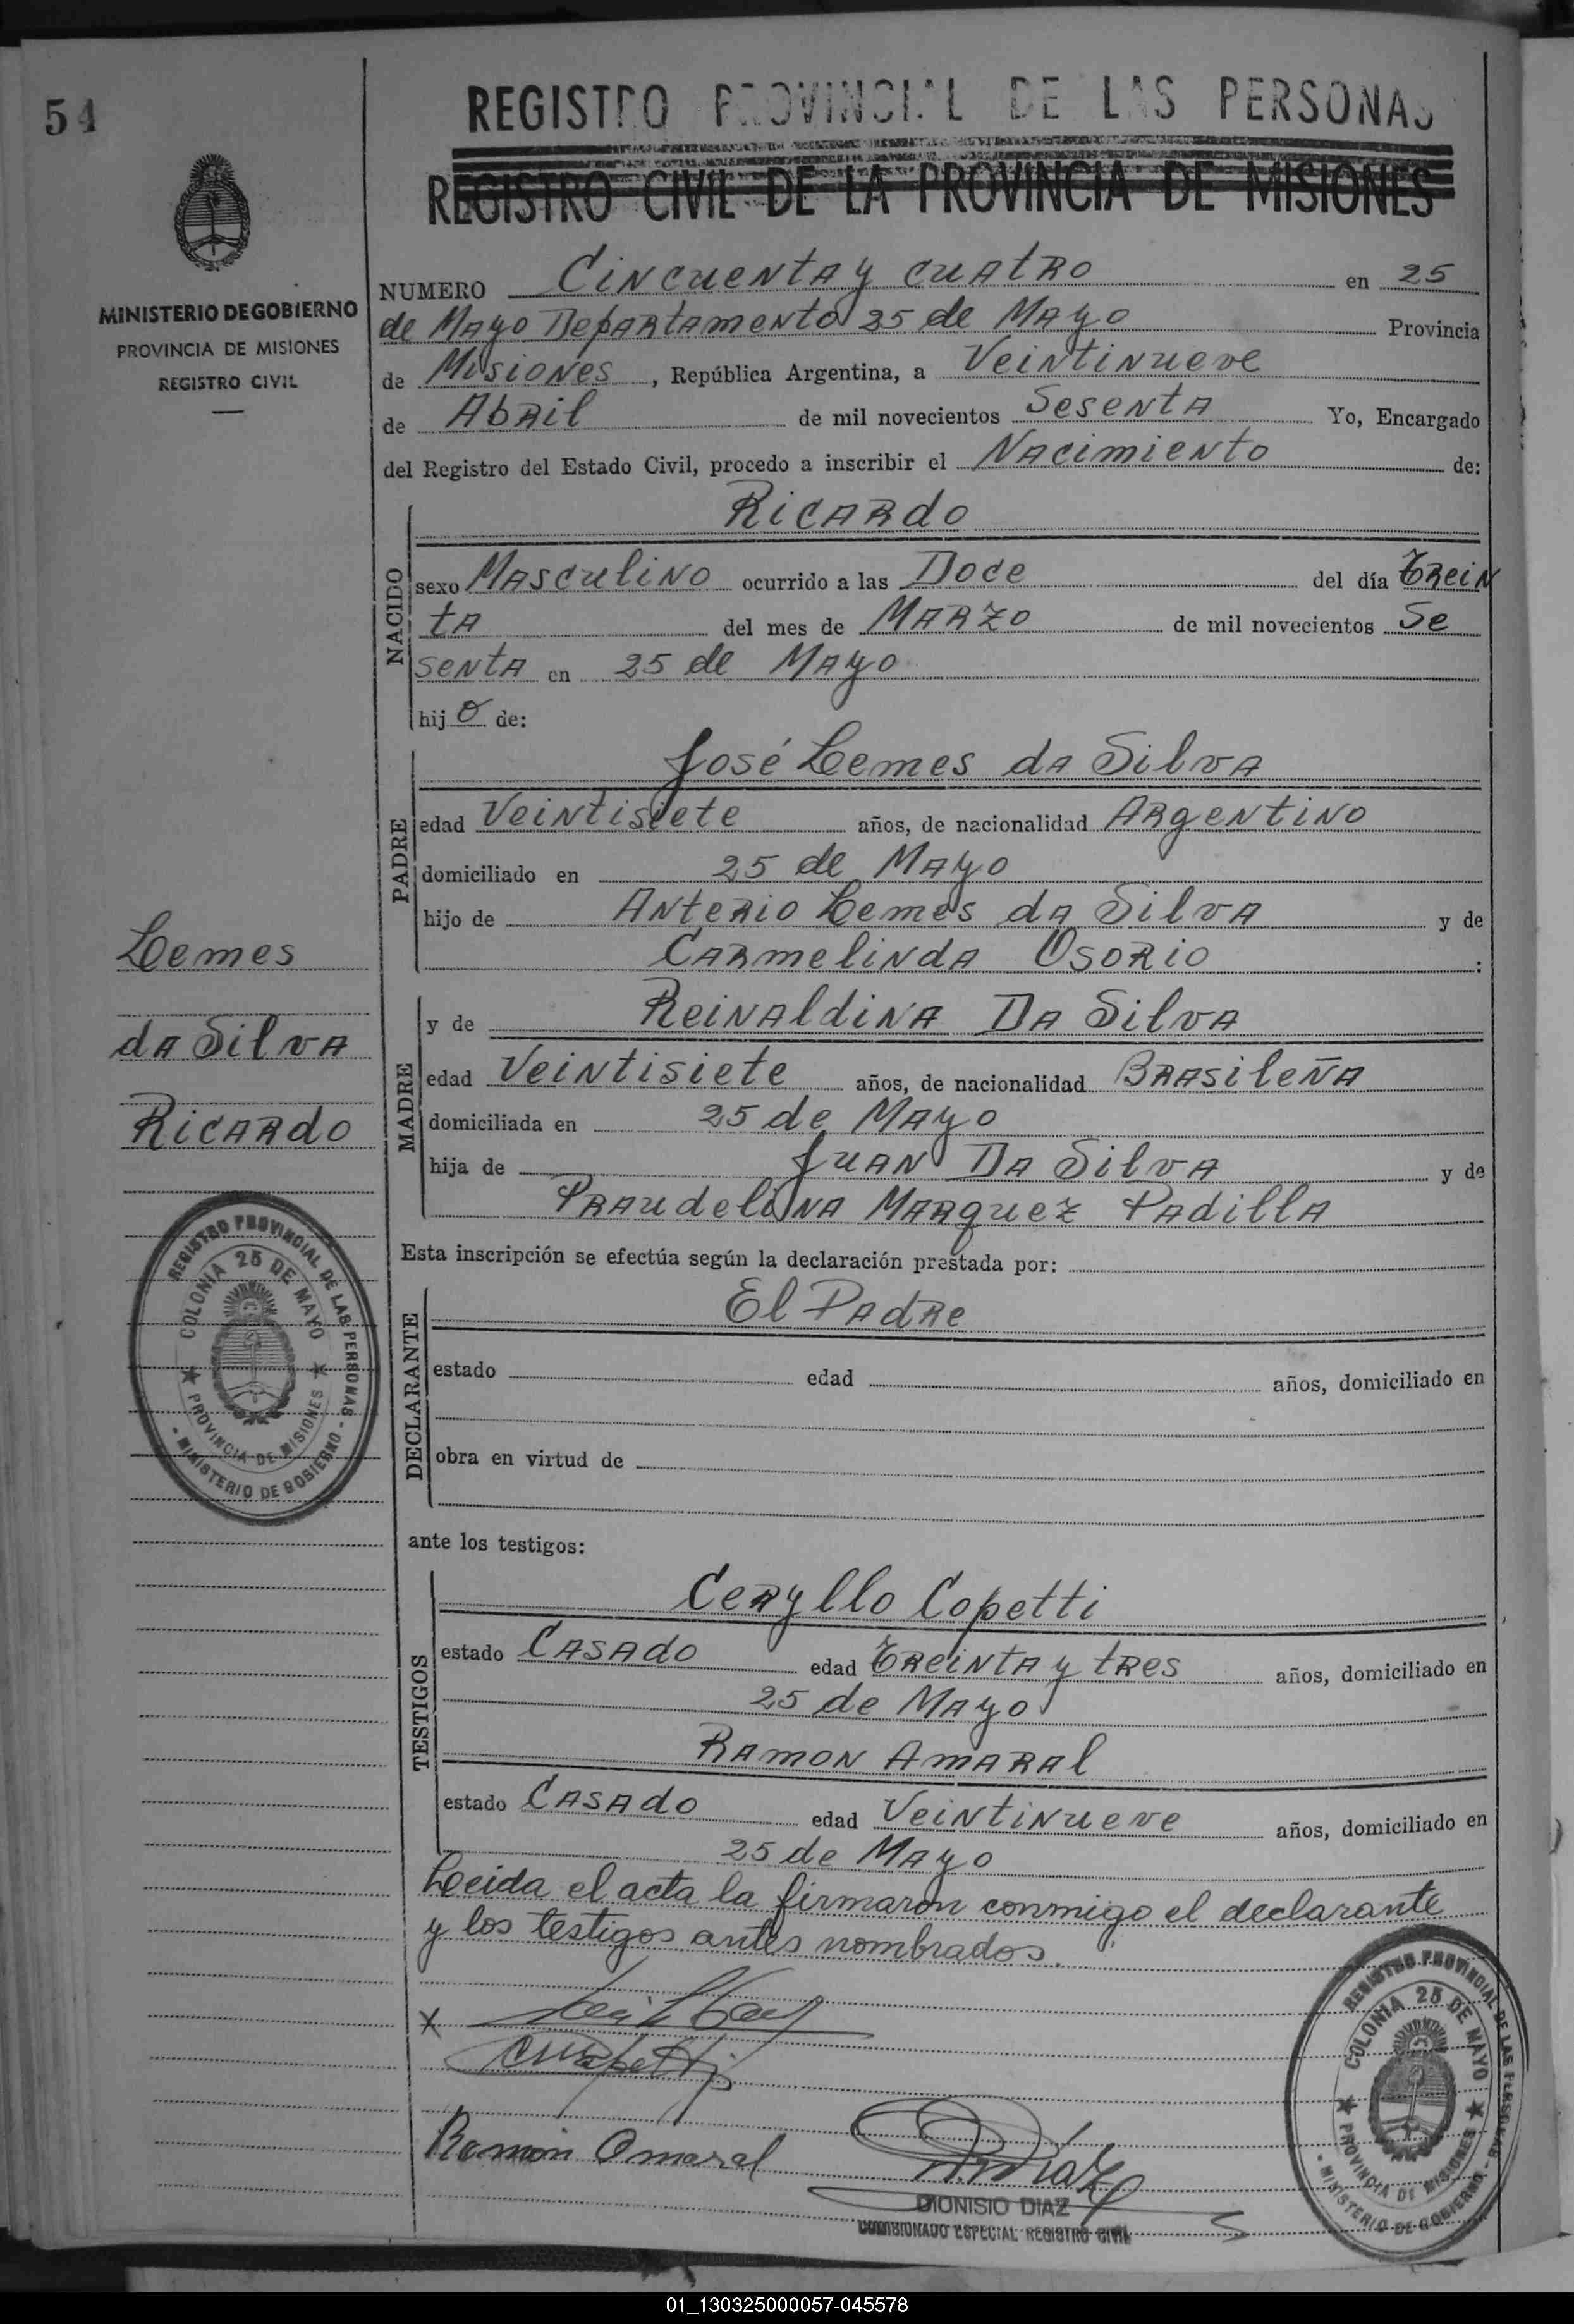 54
REGISTRO PROVINCIAL DE LAS PERSONAS
REGISTRO CIVIL DE LA PROVINCIA DE MISIONES
MINISTERIO DE GOBIERNO
PROVINCIA DE MISIONES
REGISTRO CIVIL
NUMERO Cincuenta y cuatro en 25
de Mayo Departamento 25 de Mayo Provincia
de Misiones, República Argentina, a Veintinueve
de Abril de mil novecientos Sesenta Yo, Encargado
del Registro del Estado Civil, procedo a inscribir el Nacimiento de:
NACIDO
Ricardo
sexo Masculino ocurrido a las Doce del día Trein
ta del mes de Marzo de mil novecientos Se
senta en 25 de Mayo
hijo de:
PADRE
José Lemes da Silva
edad Veintisiete años, de nacionalidad Argentino
domiciliado en 25 de Mayo
hijo de Anterio Lemes da Silva y de
Carmelinda Osorio :
Lemes
da Silva
Ricardo
MADRE
y de Reinaldina Da Silva
edad Veintisiete años, de nacionalidad Brasileña
domiciliada en 25 de Mayo
hija de Juan Da Silva y de
Praudelina Marquez Padilla
Esta inscripción se efectúa según la declaración prestada por:
REGISTRO PROVINCIAL DE LAS PERSONAS
COLONIA 25 DE MAYO
PROVINCIA DE MISIONES
- MINISTERIO DE GOBIERNO -
DECLARANTE
El Padre
estado edad años, domiciliado en
obra en virtud de
ante los testigos:
TESTIGOS
Ceryllo Copetti
estado Casado edad Treinta y tres años, domiciliado en
25 de Mayo
Ramon Amaral
estado Casado edad Veintinueve años, domiciliado en
25 de Mayo
Leida el acta la firmaron conmigo el declarante
y los testigos antes nombrados.
X
Ramón Omaral
D. Díaz
DIONISIO DIAZ
COMISIONADO ESPECIAL REGISTRO CIVIL
REGISTRO PROVINCIAL DE LAS PERSONAS
COLONIA 25 DE MAYO
PROVINCIA DE MISIONES
- MINISTERIO DE GOBIERNO -
01_130325000057-045578